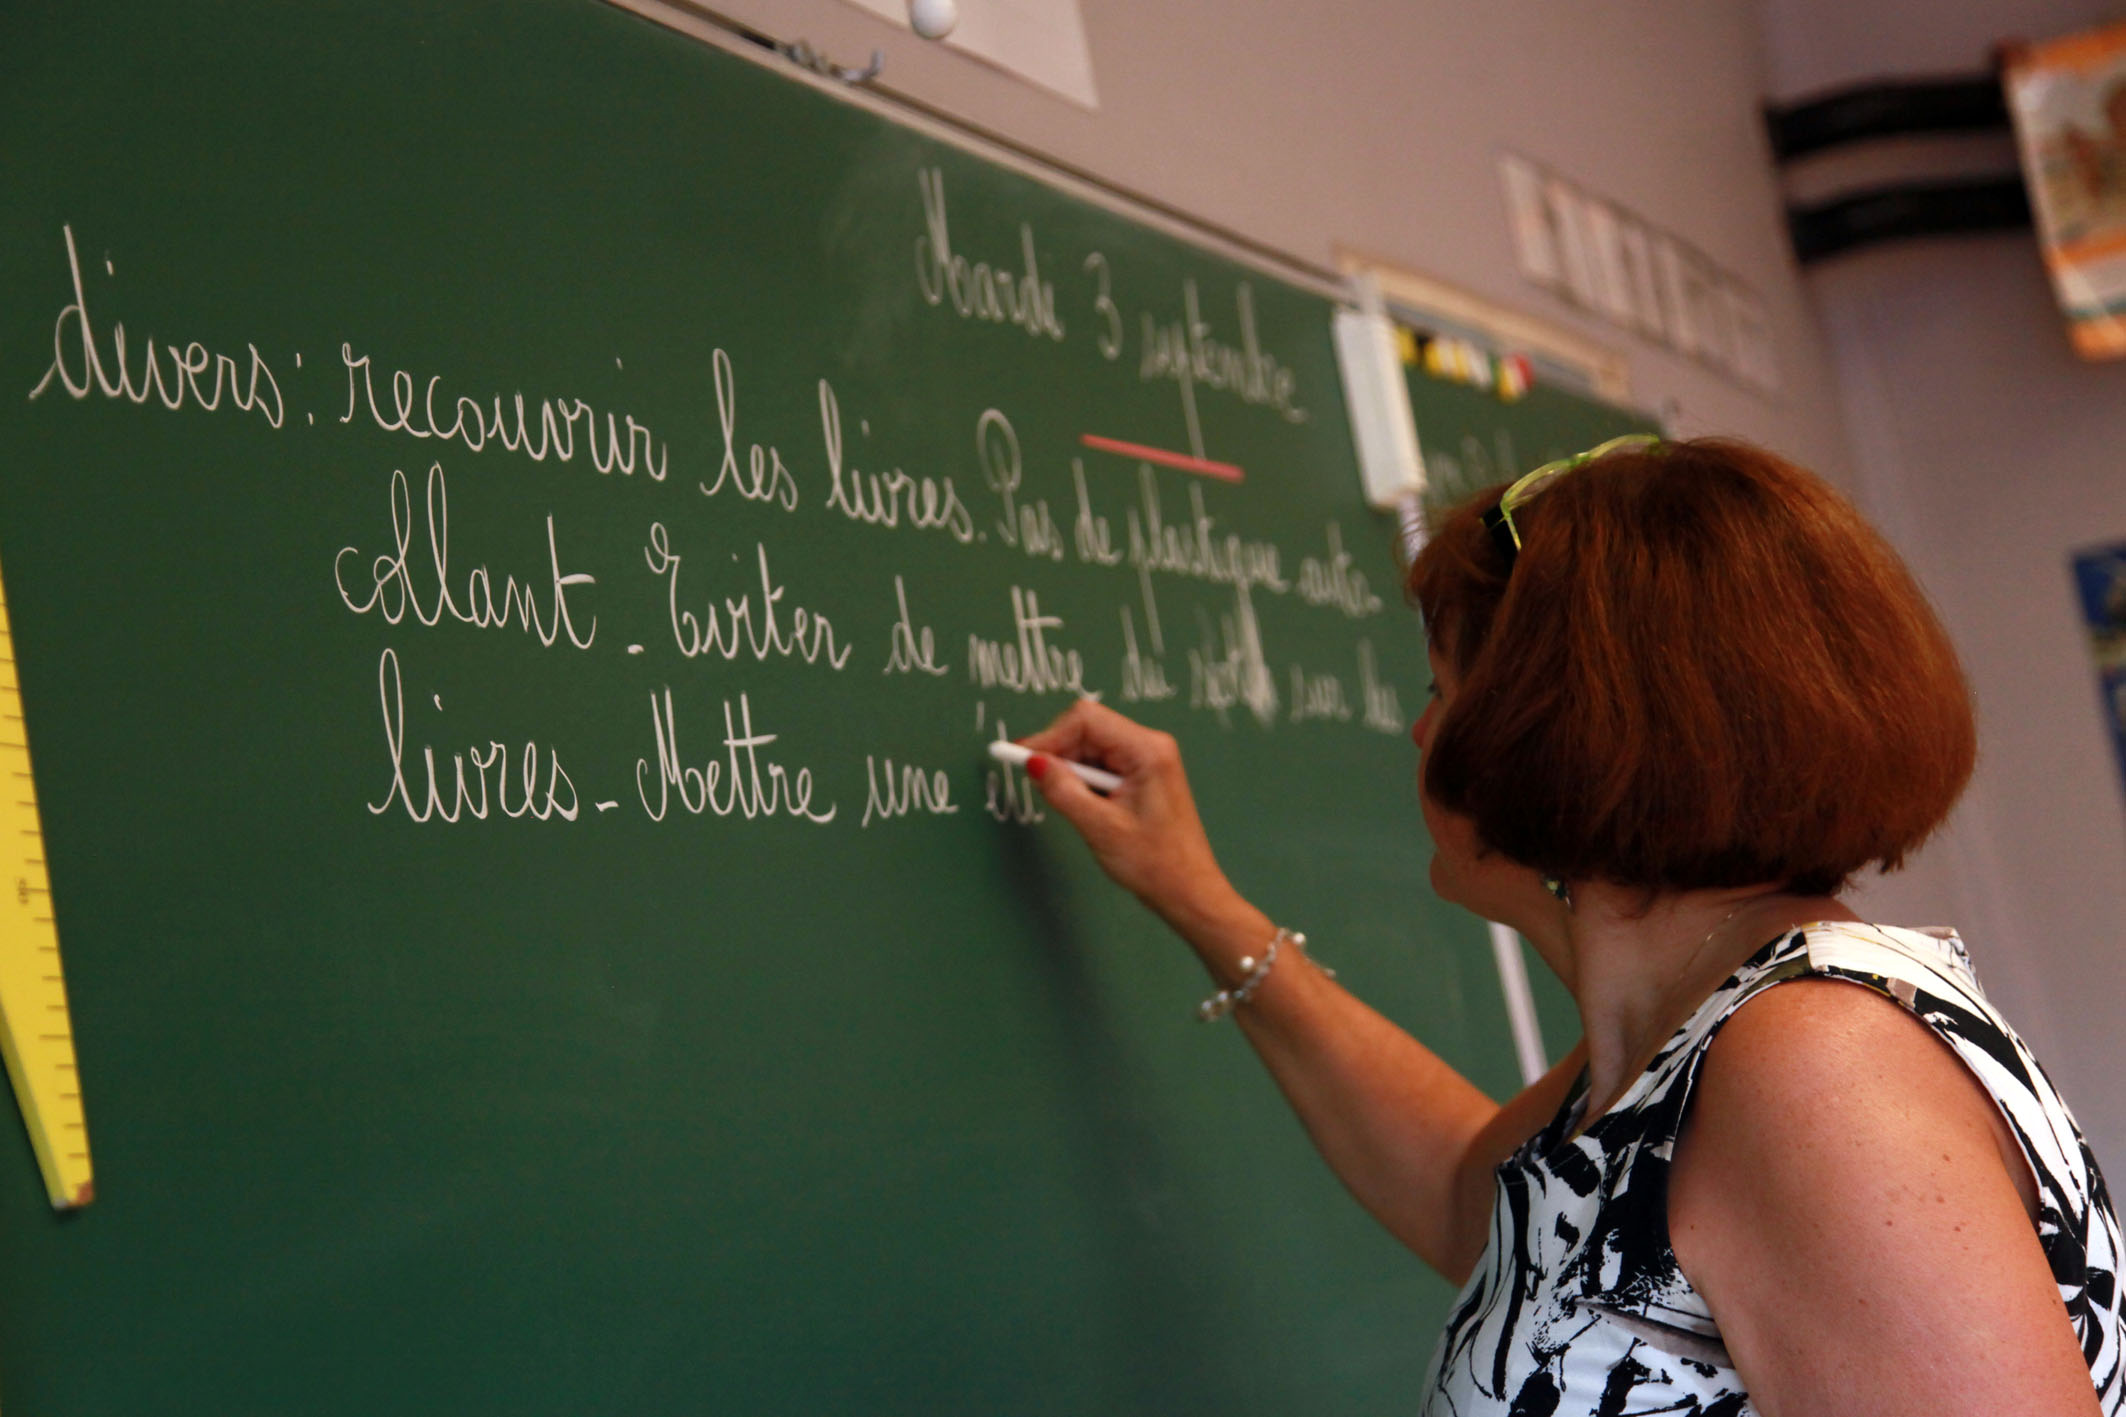 Mardi 3 septembre
divers : recouvrir les livres. Pas de plastique auto-
collant - Eviter de mettre du scotch sur les
livres - Mettre une éti